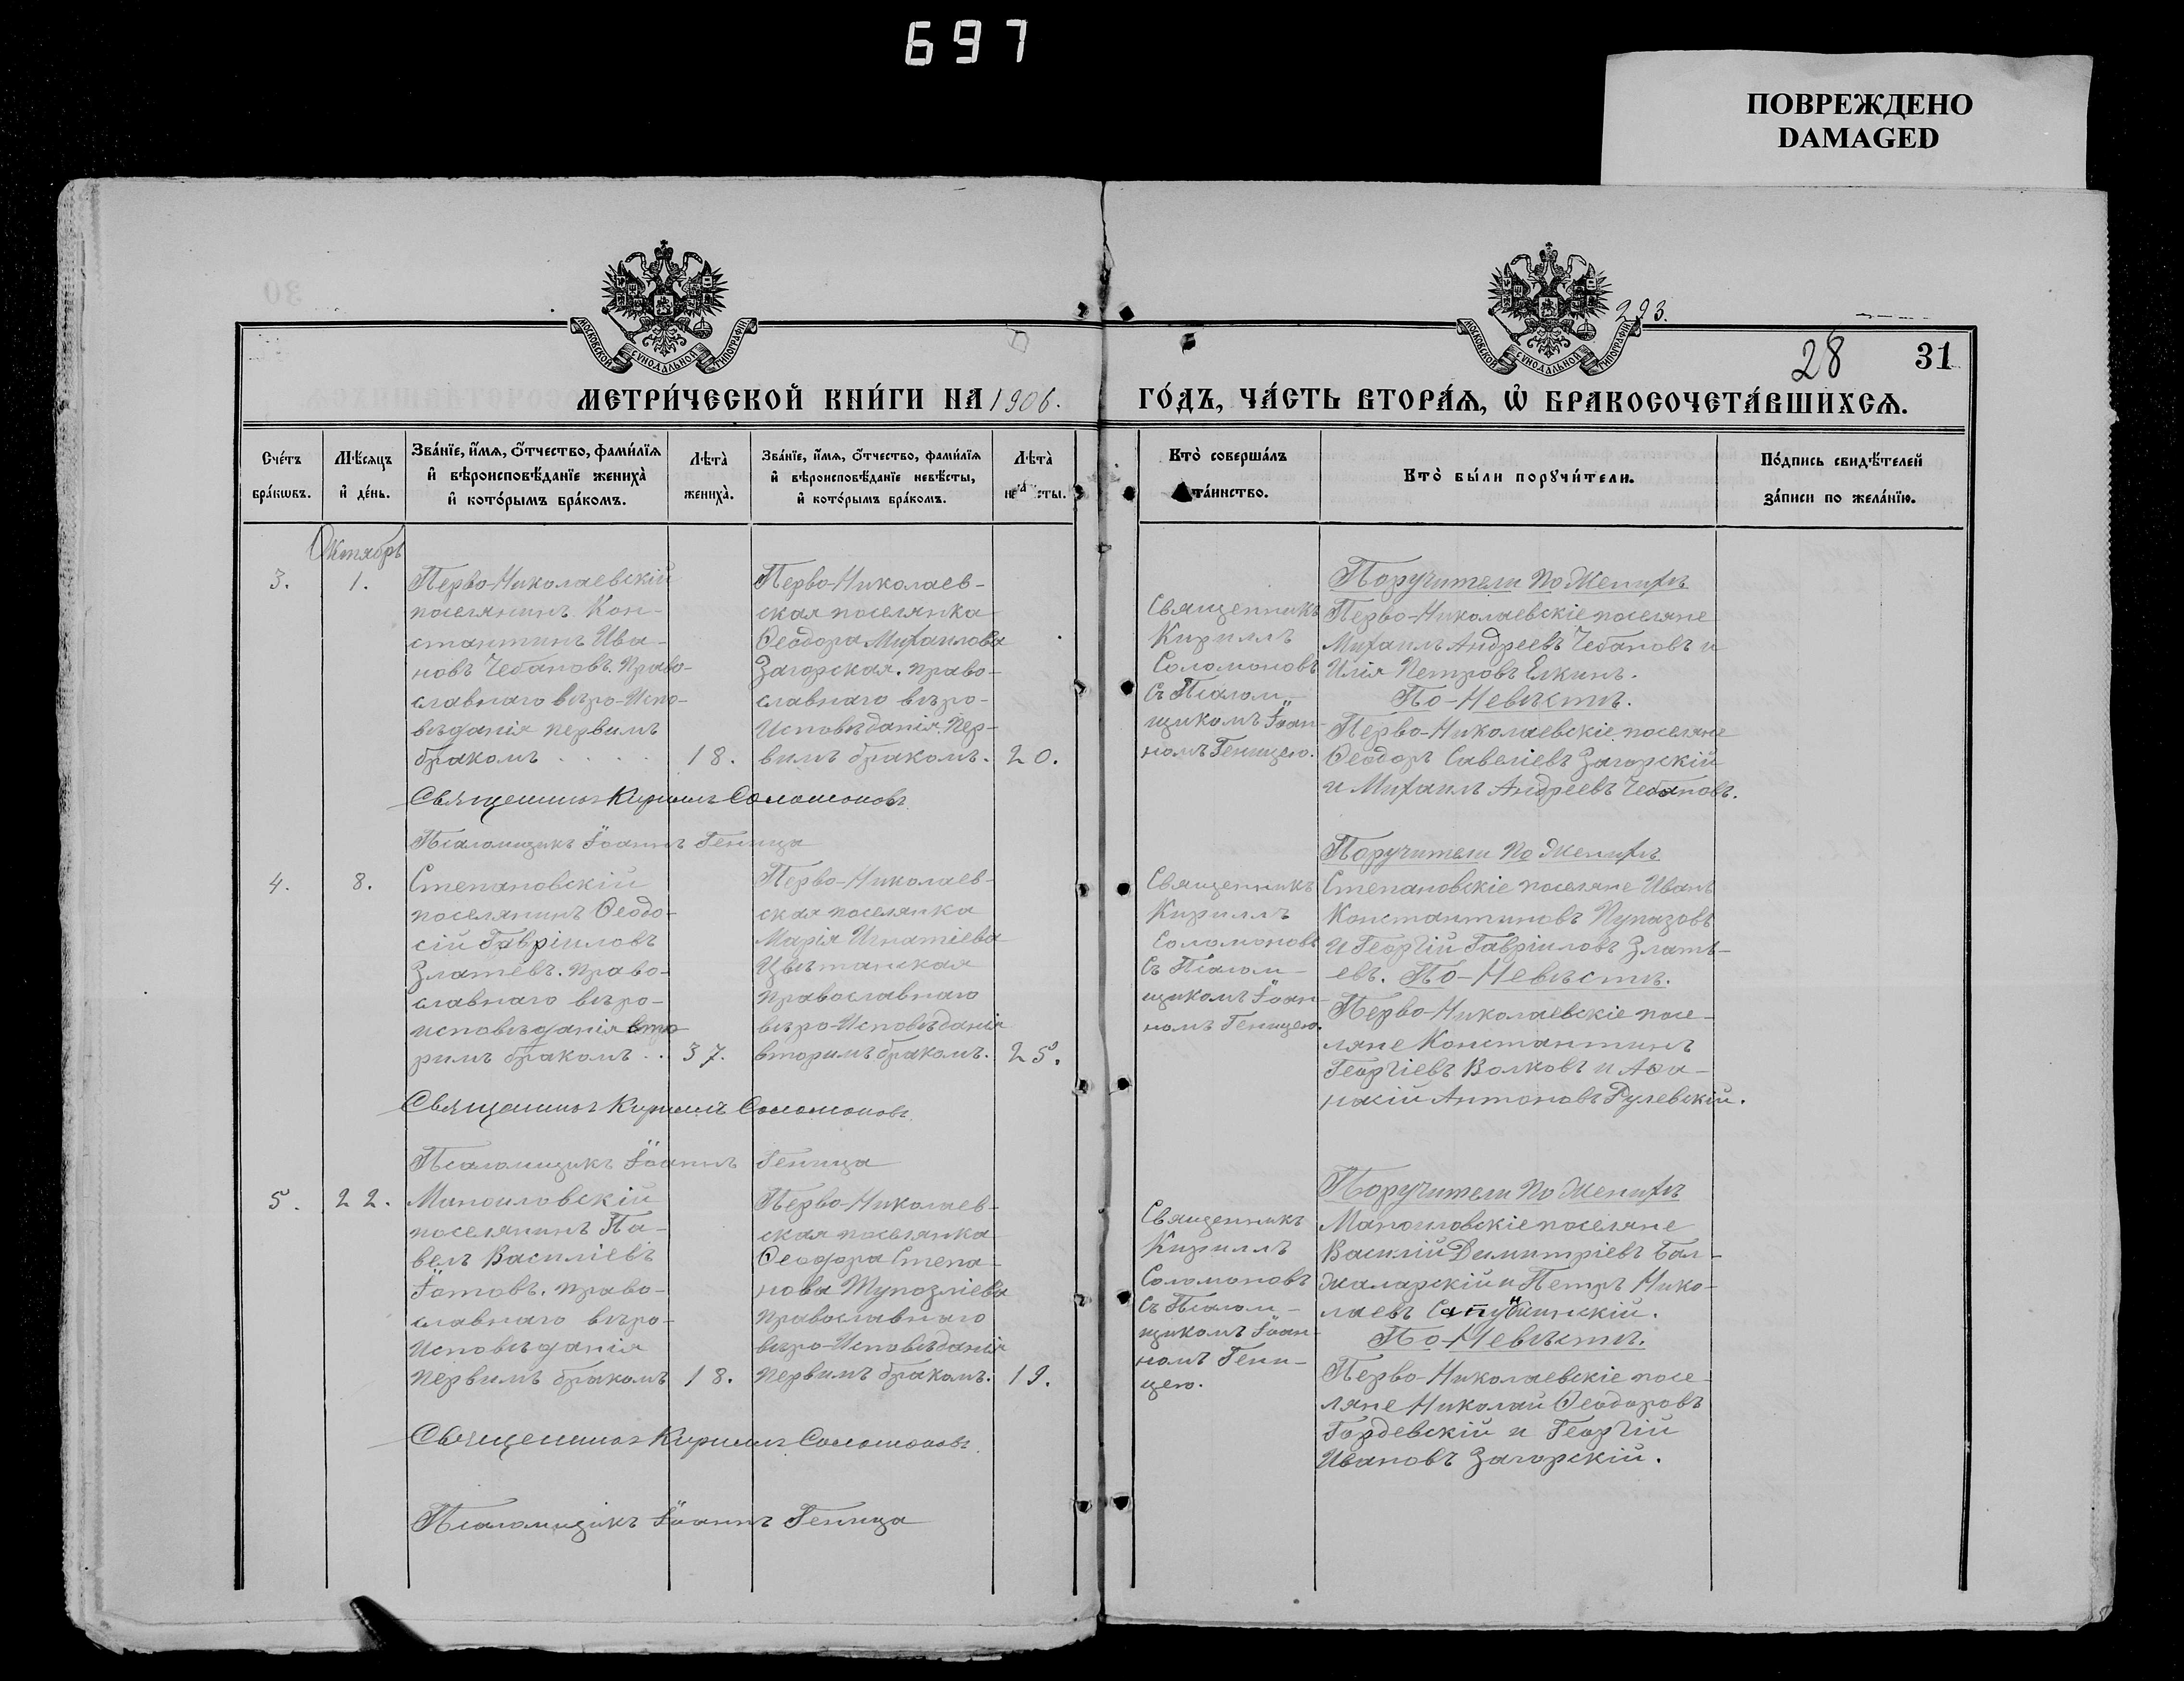 697
ПОВРЕЖДЕНО
DAMAGED
МОСКОВСКОЙ СУНОДАЛЬНОЙ ТИПОГРАФІИ
МОСКОВСКОЙ СУНОДАЛЬНОЙ ТИПОГРАФІИ
293.
28
31
МЕТРИ́ЧЕСКОЙ КНИ́ГИ НА 1906.
ГО́ДЪ, ЧА́СТЬ ВТОРА́Ѧ, Ѡ҆ БРАКОСОЧЕТА́ВШИХСѦ.
Сче́тъ
бра́кѡвъ.
Мѣ́сѧцъ
и҆ де́нь.
Зва́нїе, и҆́мѧ, ѻ҆́тчество, фами́лїѧ
и҆ вѣроисповѣ́данїе жениха̀
и҆ кото́рымъ бра́комъ.
Лѣта̀
жениха̀.
Зва́нїе, и҆́мѧ, ѻ҆́тчество, фами́лїѧ
и҆ вѣроисповѣ́данїе невѣ́сты,
и҆ кото́рымъ бра́комъ.
Лѣта̀
Кто̀ соверша́лъ
та́инство.
Кто̀ бы́ли порꙋчи́тели.
По́дпись свидѣ́телей
за́писи по жела́нїю.
Октябрь
3.
1.
Перво-Николаевскій
поселянинъ Кон-
стантинъ Ива-
новъ Чебановъ. Право-
славнаго вѣро-Испо-
вѣданія первымъ
бракомъ . . . .
18.
Перво-Николаев-
ская поселянка
Ѳеодора Михаилова
Загорская. Право-
славнаго вѣро-
Исповѣданія. Пер-
вымъ бракомъ.
20.
Священникъ
Кириллъ
Соломоновъ
съ Псалом-
щикомъ Іоан-
номъ Геницею.
Поручители По Женихѣ
Перво-Николаевскіе поселяне
Михаилъ Андреевъ Чебановъ и
Илія Петровъ Елкинъ.
По-Невѣстѣ.
Перво-Николаевскіе поселяне
Ѳеодоръ Савеліевъ Загорскій
и Михаилъ Андреевъ Чебановъ.
Священникъ Кириллъ Соломоновъ
Псаломщикъ Іоаннъ Геница
4.
8.
Степановскій
поселянинъ Ѳеодо-
сій Гавріиловъ
Златевъ. Право-
славнаго вѣро-
исповѣданія вто-
рымъ бракомъ . .
37.
Перво-Николаев-
ская поселянка
Марія Игнатіева
Цвѣтанская
Православнаго
вѣро-Исповѣданія
вторымъ бракомъ.
25.
Священникъ
Кириллъ
Соломоновъ
съ Псалом-
щикомъ Іоан-
номъ Геницею.
Поручители По Женихѣ
Степановскіе поселяне Иванъ
Константиновъ Пупазовъ
и Георгій Гавріиловъ Злат-
евъ. По-Невѣстѣ.
Перво-Николаевскіе посе-
ляне Константинъ
Георгіевъ Волковъ и Аѳа-
насій Антоновъ Рулевскій.
Священникъ Кириллъ Соломоновъ
Псаломщикъ Іоаннъ Геница
5.
22.
Маноиловскій
поселянинъ Па-
велъ Василіевъ
Іотовъ. Право-
славнаго вѣро-
Исповѣданія
первымъ бракомъ
18.
Перво-Николаев-
ская поселянка
Ѳеодора Степа-
нова Тупозліева
Православнаго
вѣро-Исповѣданія
первымъ бракомъ.
19.
Священникъ
Кириллъ
Соломоновъ
съ Псалом-
щикомъ Іоан-
номъ Гени-
цею.
Поручители По Женихѣ
Маноиловскіе поселяне
Василій Димитріевъ Бал-
жаларскій и Петръ Нико-
лаевъ
По-Невѣстѣ.
Перво-Николаевскіе посе-
ляне Николай Ѳеодоровъ
Гордевскій и Георгій
Ивановъ Загорскій.
Священникъ Кириллъ Соломоновъ
Псаломщикъ Іоаннъ Геница